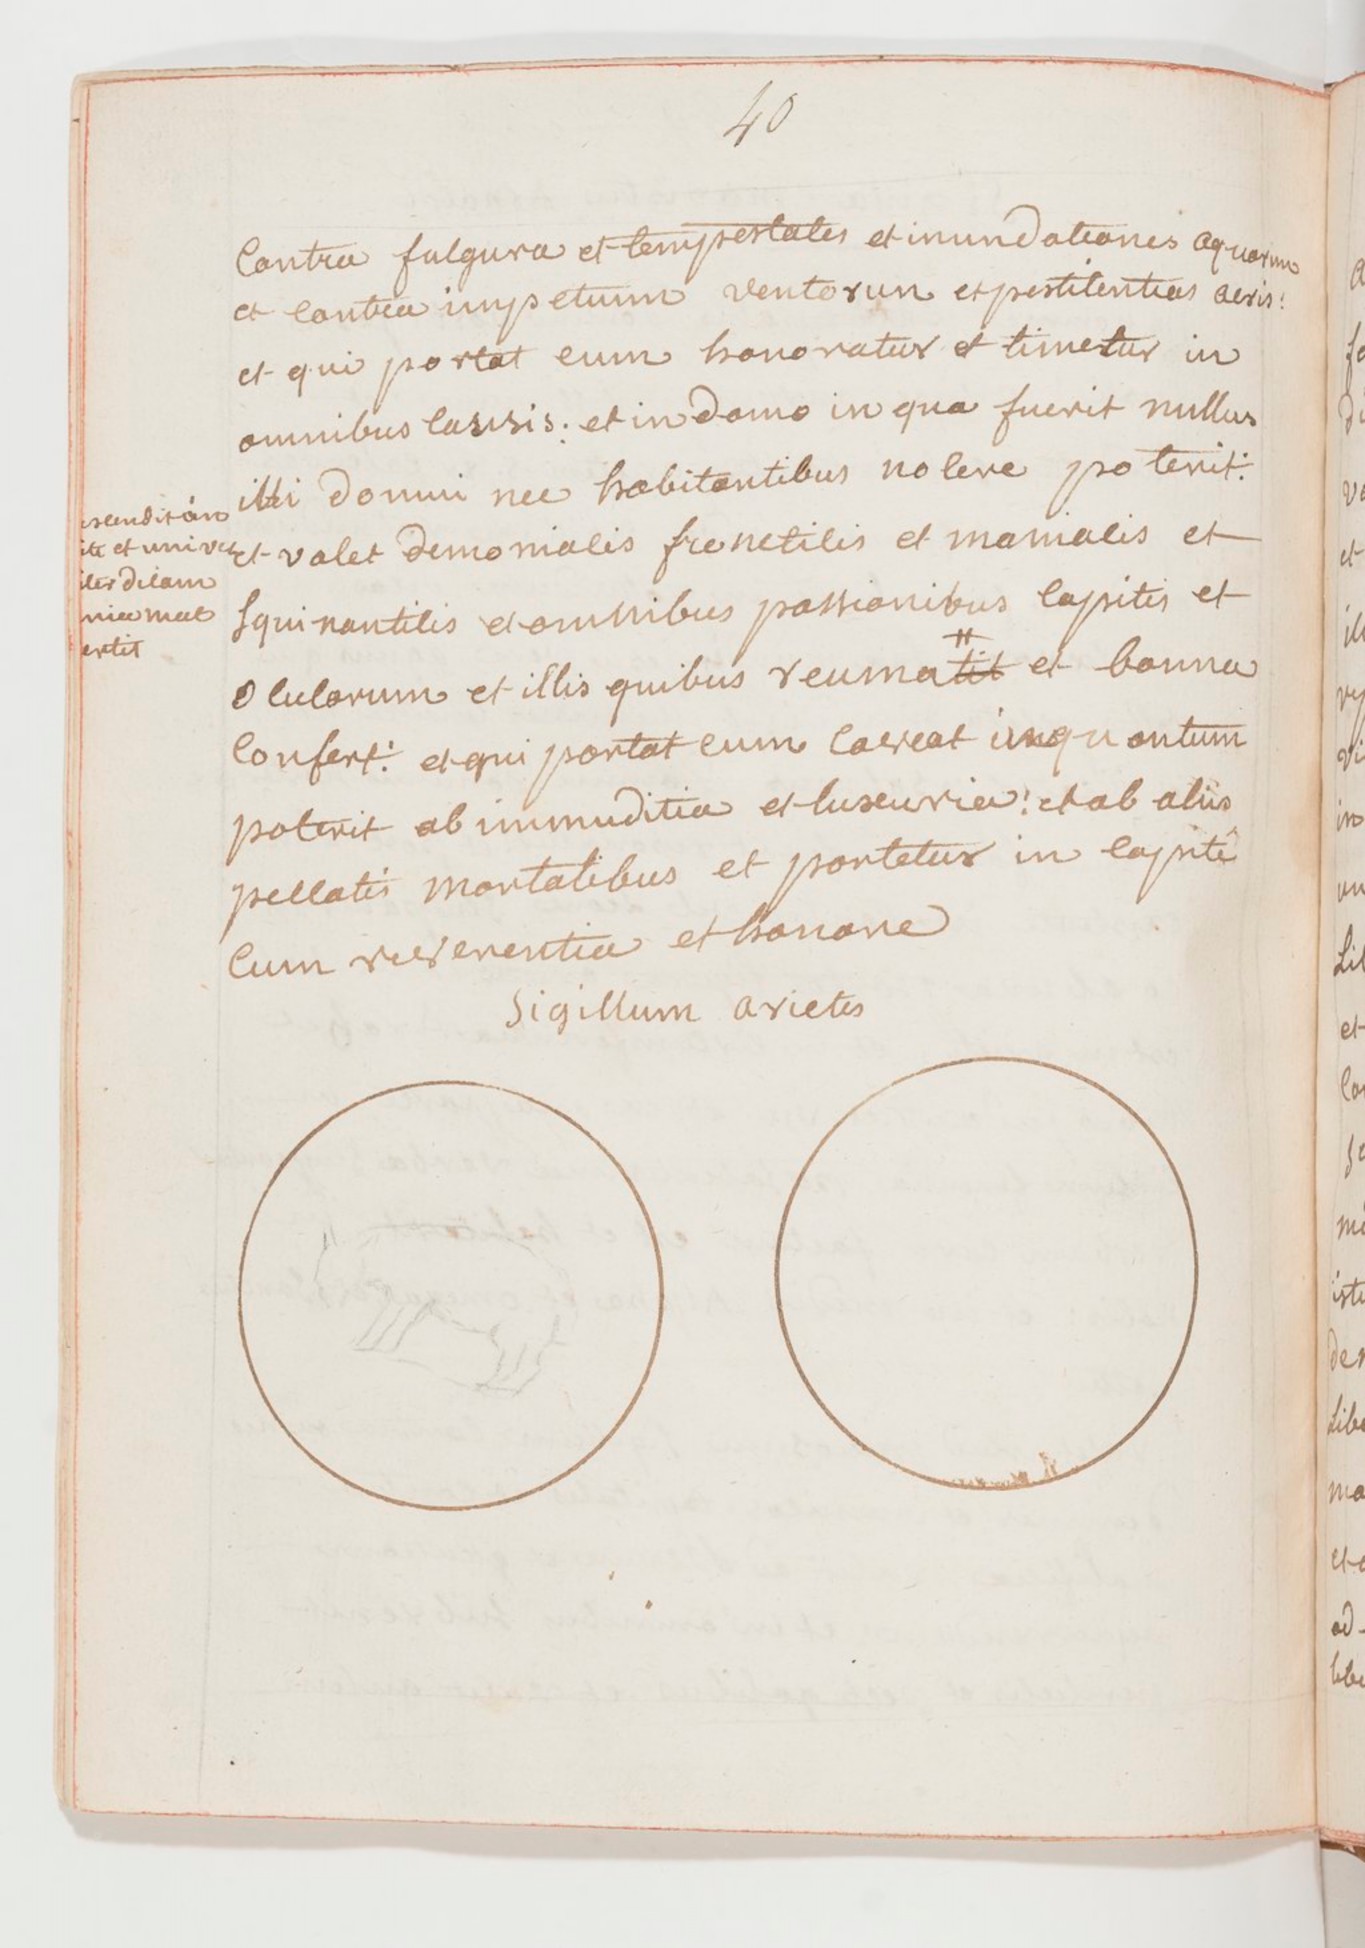 40
Contra fulgura et tempestates et inundationes aquarum
et contra impetum ventorun et pestilentias aeris:
et qui portat eum honoratur et timetur in
omnibus causis: et in domo in qua fuerit nullus
illi domui nec habitantibus nocere poterit:
et valet demoniacis freneticis et maniacis et
squinanticis et omnibus passionibus capitis et
oculorum et illis quibus reumatit et bonna
confert: et qui portat eum caveat inquantum
poterit ab immuditia et luxuria: et ab aliis
peccatis mortalibus et portetur in capite
cum reverentia et honore
scendit an
ite et univer
iter dicam
nia mat
ertit
Sigillum arietis